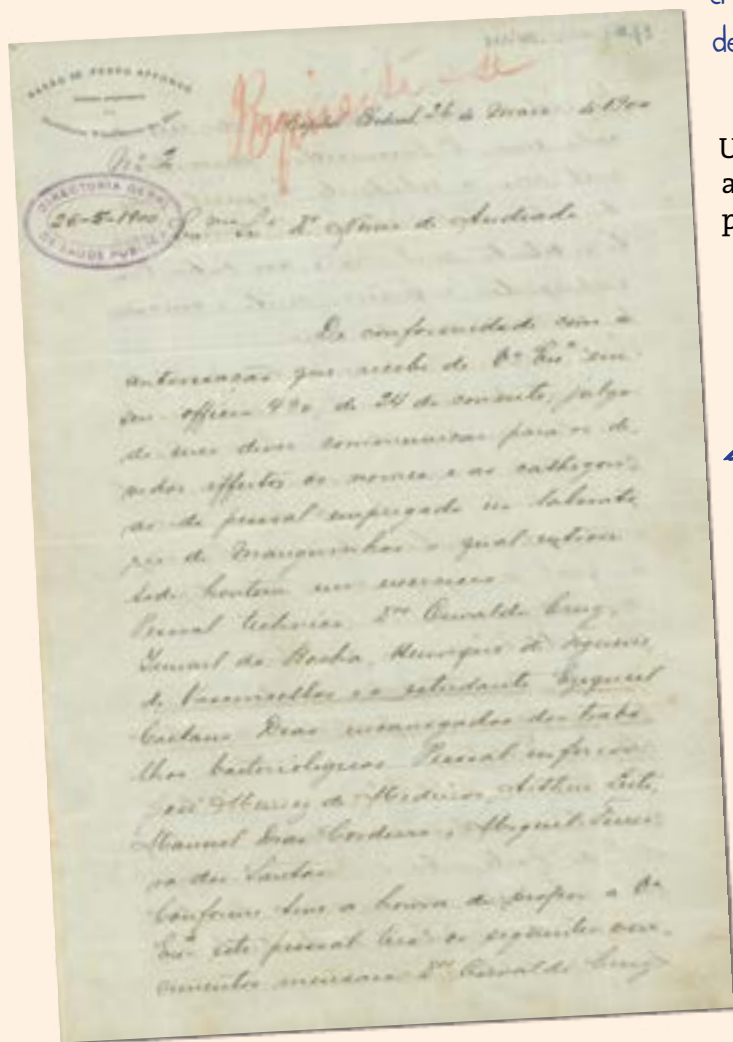 BARÃO DE PEDRO AFFONSO
Capital Federal 26 de Maio de 1900
Nº 2
DIRECTORIA GERAL
26-5-1900
DE SAUDE PUBLICA
Exmo Snr Dr Nuno de Andrade
De conformidade com a
autorisação que recebi de Vª Exª em
seu officio 490, de 24 do corrente, julgo
de meu dever communicar para os de-
vidos effeitos os nomes e as cathegori-
as do pessoal empregado no laborato-
rio de Manguinhos o qual entrou
desde hontem em exercicio
Pessoal technico, Drs Oswaldo Cruz,
Ismael da Rocha, Henrique de Figueiredo
de Vasconcellos e o estudante Ezequiel
Caetano Dias encarregados dos traba-
lhos bacteriologicos Pessoal inferior:
José de Medeiros, Arthur Leite,
Manuel Dias Cordeiro, Miguel Ferrei-
ra dos Santos
Conforme tive a honra de propor a Vª
Exª este pessoal terá os seguintes ven-
cimentos mensaes: Dr Oswaldo Cruz
de
U
a
p